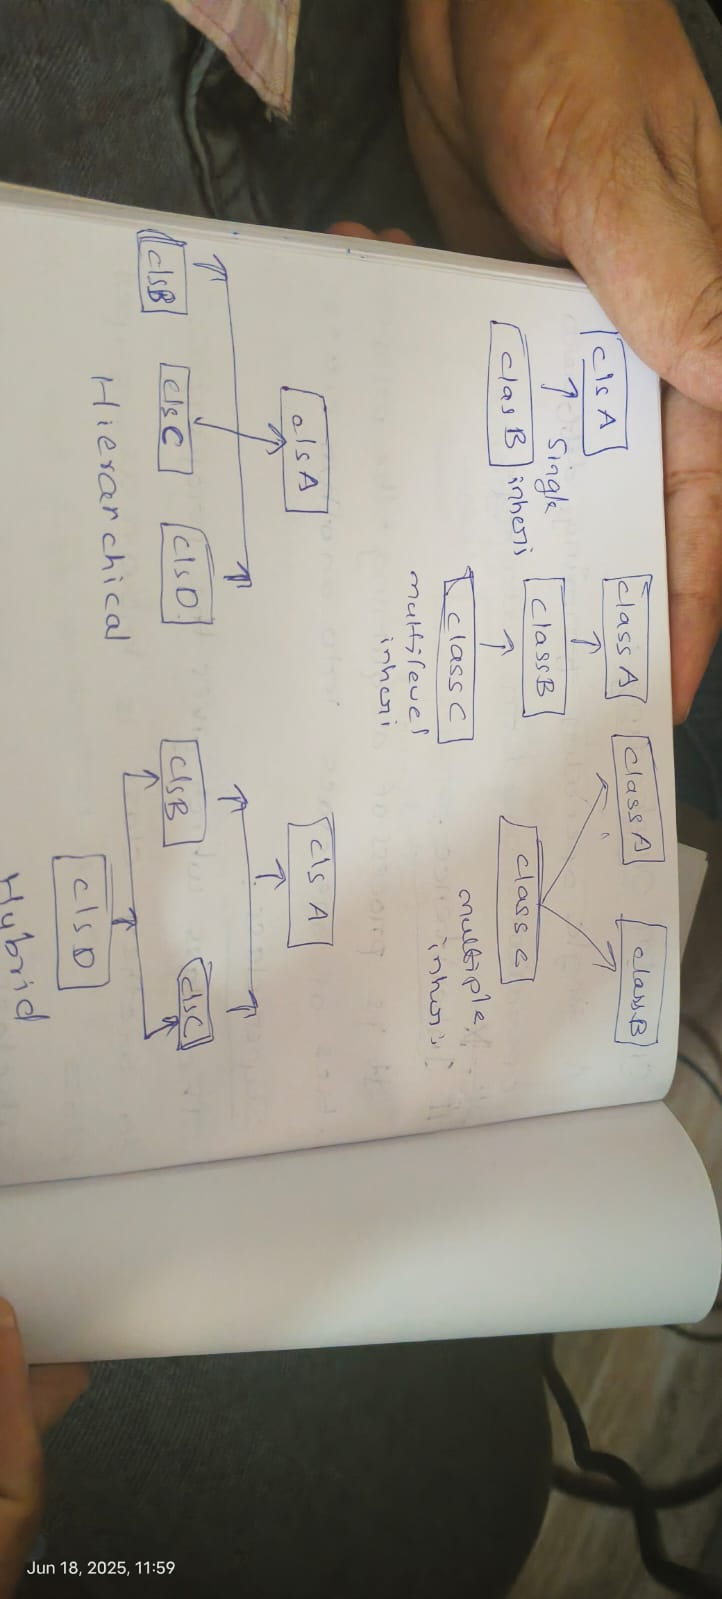 cls A
clas B
Single
inheri
class A
class B
class C
multilevel
inheri
class A
class B
class C
multiple
inheri
cls A
cls B
cls C
cls D
Hierarchical
cls A
cls B
cls C
cls D
Hybrid
Jun 18, 2025, 11:59